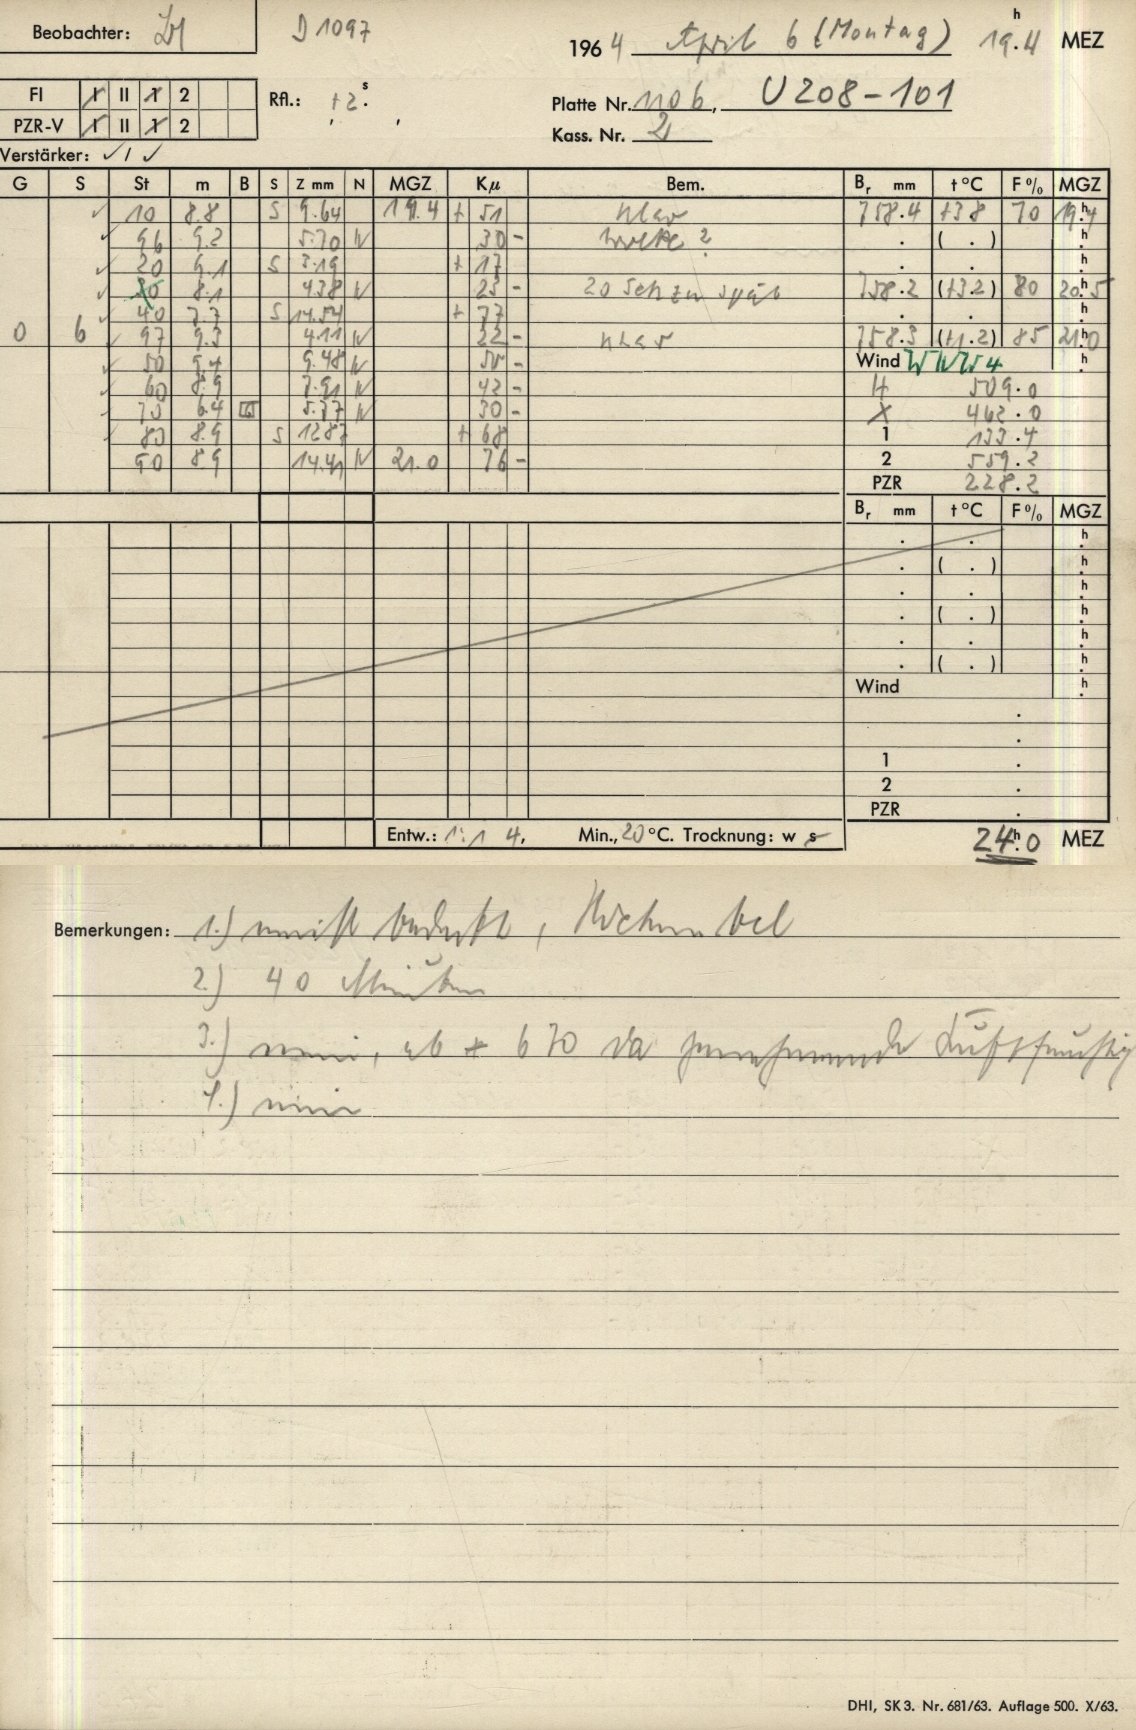 Beobachter: D 1097 1964 April 6 (Montag) 19h.4 MEZ
FI I II 1 2 Rfl.: +2s. Platte Nr. 1106, U 208-101
PZR-V I II 1 2 Kass. Nr. 2
Verstärker: ✓ 1 ✓
G S St m B S Z mm N MGZ Kμ Bem. Br mm t °C F % MGZ
✓ 10 8.8 S 9.64 19.4 + 51 klar 758.4 +3.8 70 19h.4
✓ 96 9.2 5.70 N 30 - Wolke ? . ( . ) h
✓ 20 9.1 S 3.19 + 17 . . h
✓ 30 8.1 4.38 N 23 - 20 Sek zu spät 758.2 (+3.2) 80 20h.5
✓ 40 7.7 S 14.54 + 77 . . h
0 6 ✓ 97 9.3 4.11 N 22 - klar 758.3 (+1.2) 85 21h.0
✓ 50 9.4 9.48 N 50 - Wind WNW 4 h
✓ 60 8.9 7.91 N 42 - H 509.0
✓ 70 6.4 5.77 N 30 - X 462.0
✓ 80 8.9 S 12.87 + 68 1 133.4
90 8.9 14.41 N 21.0 76 - 2 559.2
PZR 228.2
Br mm t °C F % MGZ
. . h
. ( . ) h
. . h
. ( . ) h
. . h
. ( . ) h
Wind h
.
.
1 .
2 .
PZR .
Entw.: 1:1 4, Min., 20 °C. Trocknung: w s 24h.0 MEZ
Bemerkungen: 1.) meist bedeckt, Hochnebel
2.) 40 Minuten
3.) nein, ab * 670 da zunehmende Luftfeuchtig
4.) nein
DHI, SK 3. Nr. 681/63. Auflage 500. X/63.